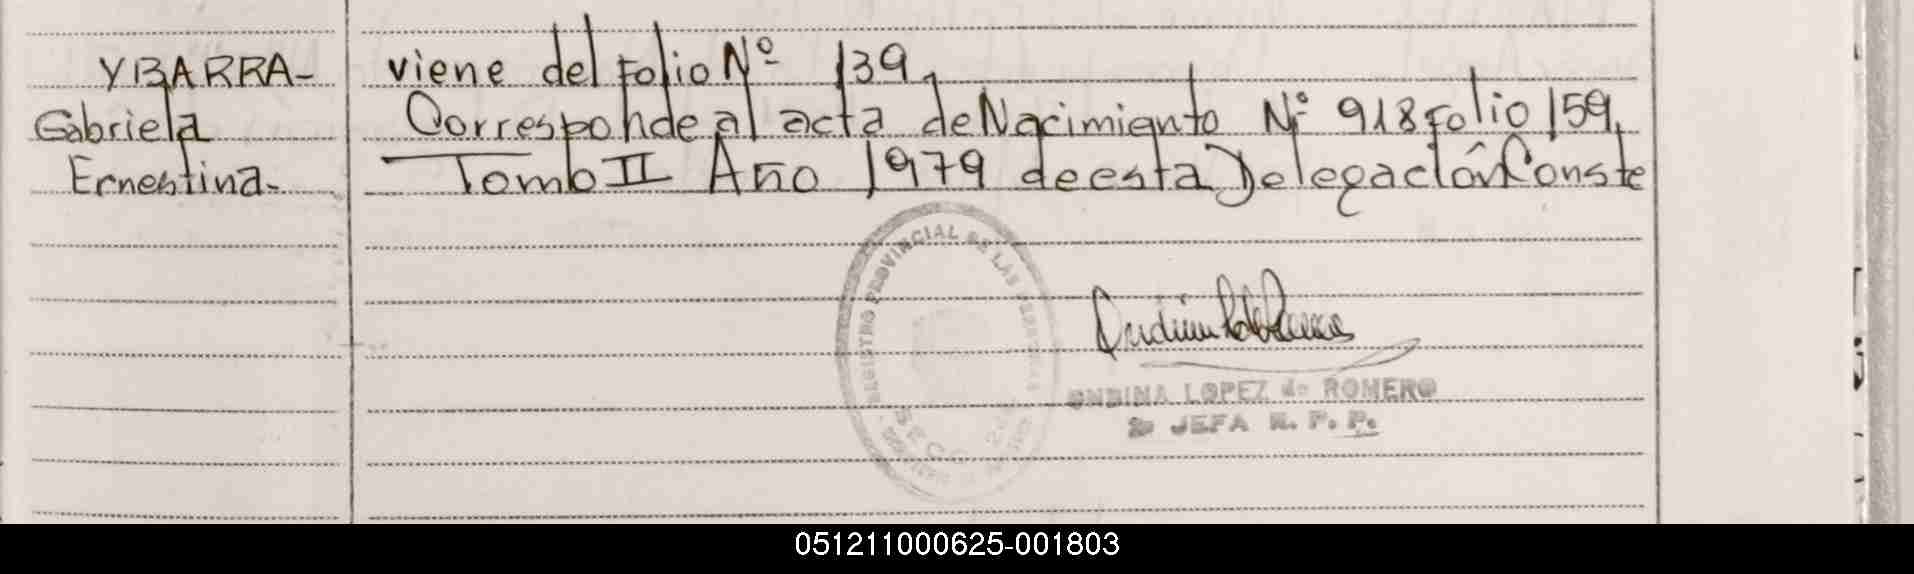 YBARRA-
Gabriela
Ernestina.
viene del Folio Nº 139,
Corresponde al acta de Nacimiento Nº 918 Folio 159,
Tomo II Año 1979 de esta Delegación Conste
REGISTRO PROVINCIAL DE LAS PERSONAS
SECC
ONDINA LOPEZ de ROMERO
JEFA R. P. P.
051211000625-001803